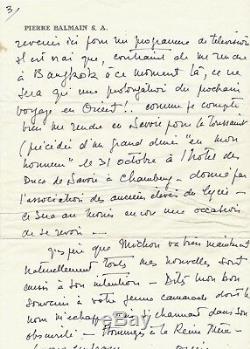 3)
PIERRE BALMAIN S. A.
revenir ici pour un programme de télévision
Il est vrai que, contraint de me rendre
à Bangkok à ce moment là, ce ne
sera qu'une prolongation du prochain
voyage en Orient! comme je compte
bien me rendre en Savoie pour la Toussaint
(précédée d'un grand dîner "en mon
honneur" le 31 octobre à l'hôtel des
Ducs de Savoie à Chambéry - donné par
l'association des anciens élèves du lycée -
ce sera au moins encore une occasion
de se revoir -
que Michou va bien maintenant
naturellement toutes mes nouvelles sont
aussi à son intention - Dites mon bon
souvenir à votre jeune camarade dont le
nom m'échappe, si charmant dans son
obscurité - Hommages à la Reine Mère -